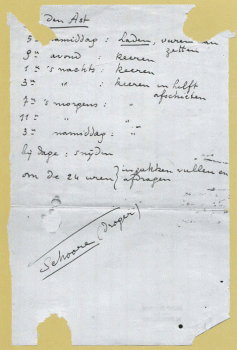 den Ast
5ᵉ namiddag : laden, vuren aan zetten
9ᵉ avond : keeren
1ᵉ 's nachts : keeren
3ᵉ " : keeren in helft afschieten
7ᵉ 's morgens : "
11ᵉ " : "
3ᵉ namiddag : "
bij dage : snijden
om de 24 uren } inzakken vullen en afdragen
Schoore (droger)